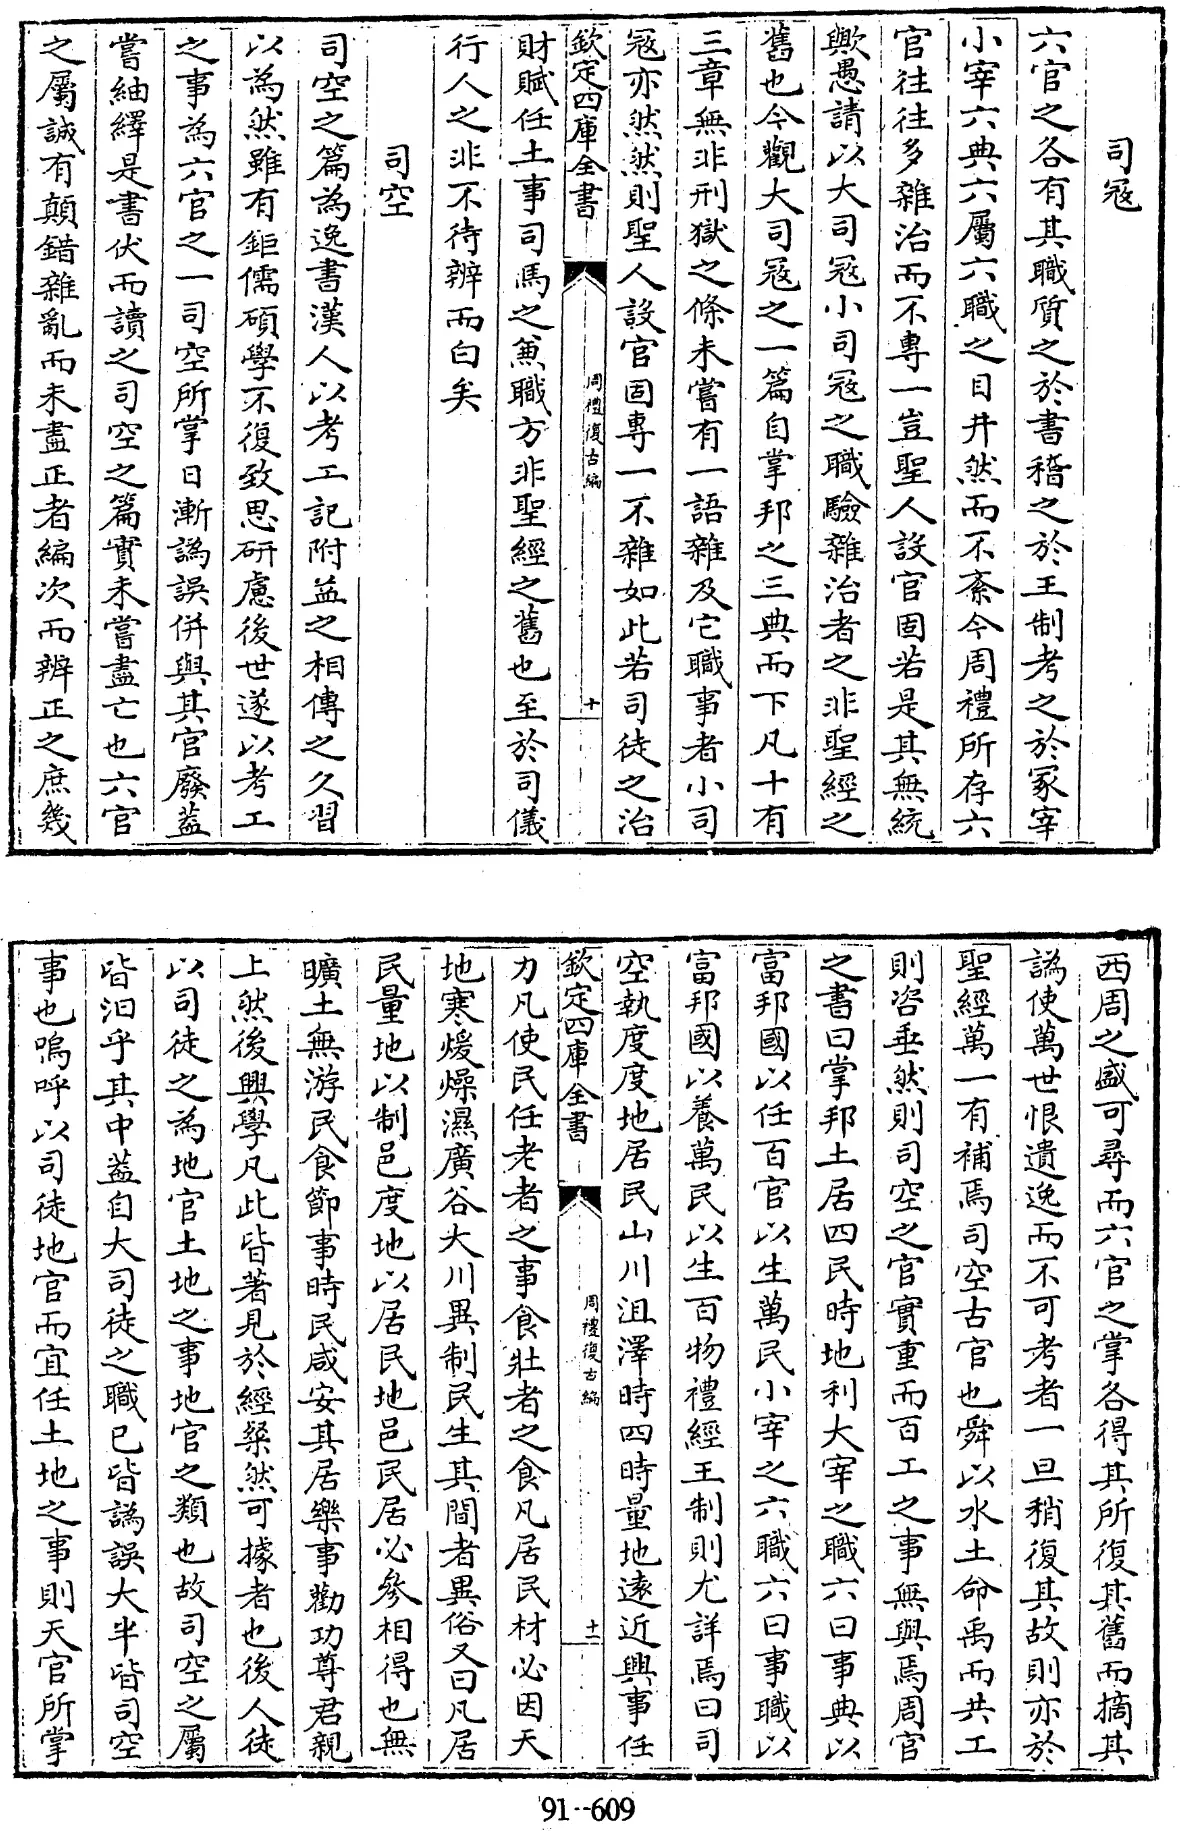 司冦
六官之各有其職質之於書稽之於王制考之於冢宰
小宰六典六屬六職之目井然而不紊今周禮所存六
官往往多雜治而不專一豈聖人設官固若是其無統
歟愚請以大司冦小司冦之職驗雜治者之非聖經之
舊也今觀大司冦之一篇自掌邦之三典而下凡十有
三章無非刑獄之條未嘗有一語雜及它職事者小司
冦亦然然則聖人設官固專一不雜如此若司徒之治
欽定四庫全書
周禮復古編
十
財賦任土事司馬之兼職方非聖經之舊也至於司儀
行人之非不待辨而白矣
司空
司空之篇為逸書漢人以考工記附益之相傳之久習
以為然雖有鉅儒碩學不復致思研慮後世遂以考工
之事為六官之一司空所掌日漸譌誤併與其官廢蓋
嘗紬繹是書伏而讀之司空之篇實未嘗盡亡也六官
之屬誠有顛錯雜亂而未盡正者編次而辨正之庶幾
西周之盛可尋而六官之掌各得其所復其舊而摘其
譌使萬世恨遺逸而不可考者一旦稍復其故則亦於
聖經萬一有補焉司空古官也舜以水土命禹而共工
則咨垂然則司空之官實重而百工之事無與焉周官
之書曰掌邦土居四民時地利大宰之職六曰事典以
富邦國以任百官以生萬民小宰之六職六曰事職以
富邦國以養萬民以生百物禮經王制則尤詳焉曰司
空執度度地居民山川沮澤時四時量地遠近興事任
欽定四庫全書
周禮復古編
十一
力凡使民任老者之事食壯者之食凡居民材必因天
地寒煖燥濕廣谷大川異制民生其間者異俗又曰凡居
民量地以制邑度地以居民地邑民居必參相得也無
曠土無游民食節事時民咸安其居樂事勸功尊君親
上然後興學凡此皆著見於經粲然可據者也後人徒
以司徒之為地官土地之事地官之類也故司空之屬
皆汩乎其中蓋自大司徒之職已皆譌誤大半皆司空
事也嗚呼以司徒地官而宜任土地之事則天官所掌
91--609